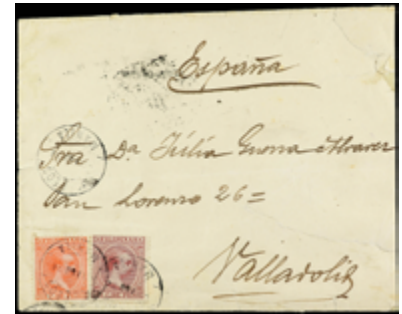 España
Sra Dª Júlia Guerra Alvarez
San Lorenzo 26=
Valladolid